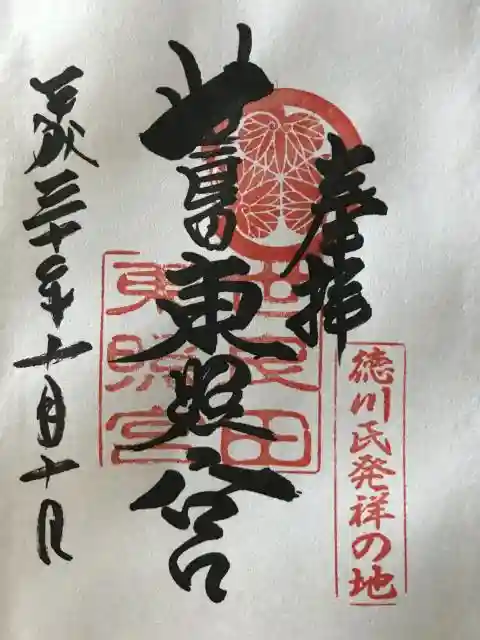 奉拝
徳川氏発祥の地
世良田
東照宮
世良田東照宮
平成三十年十月十日